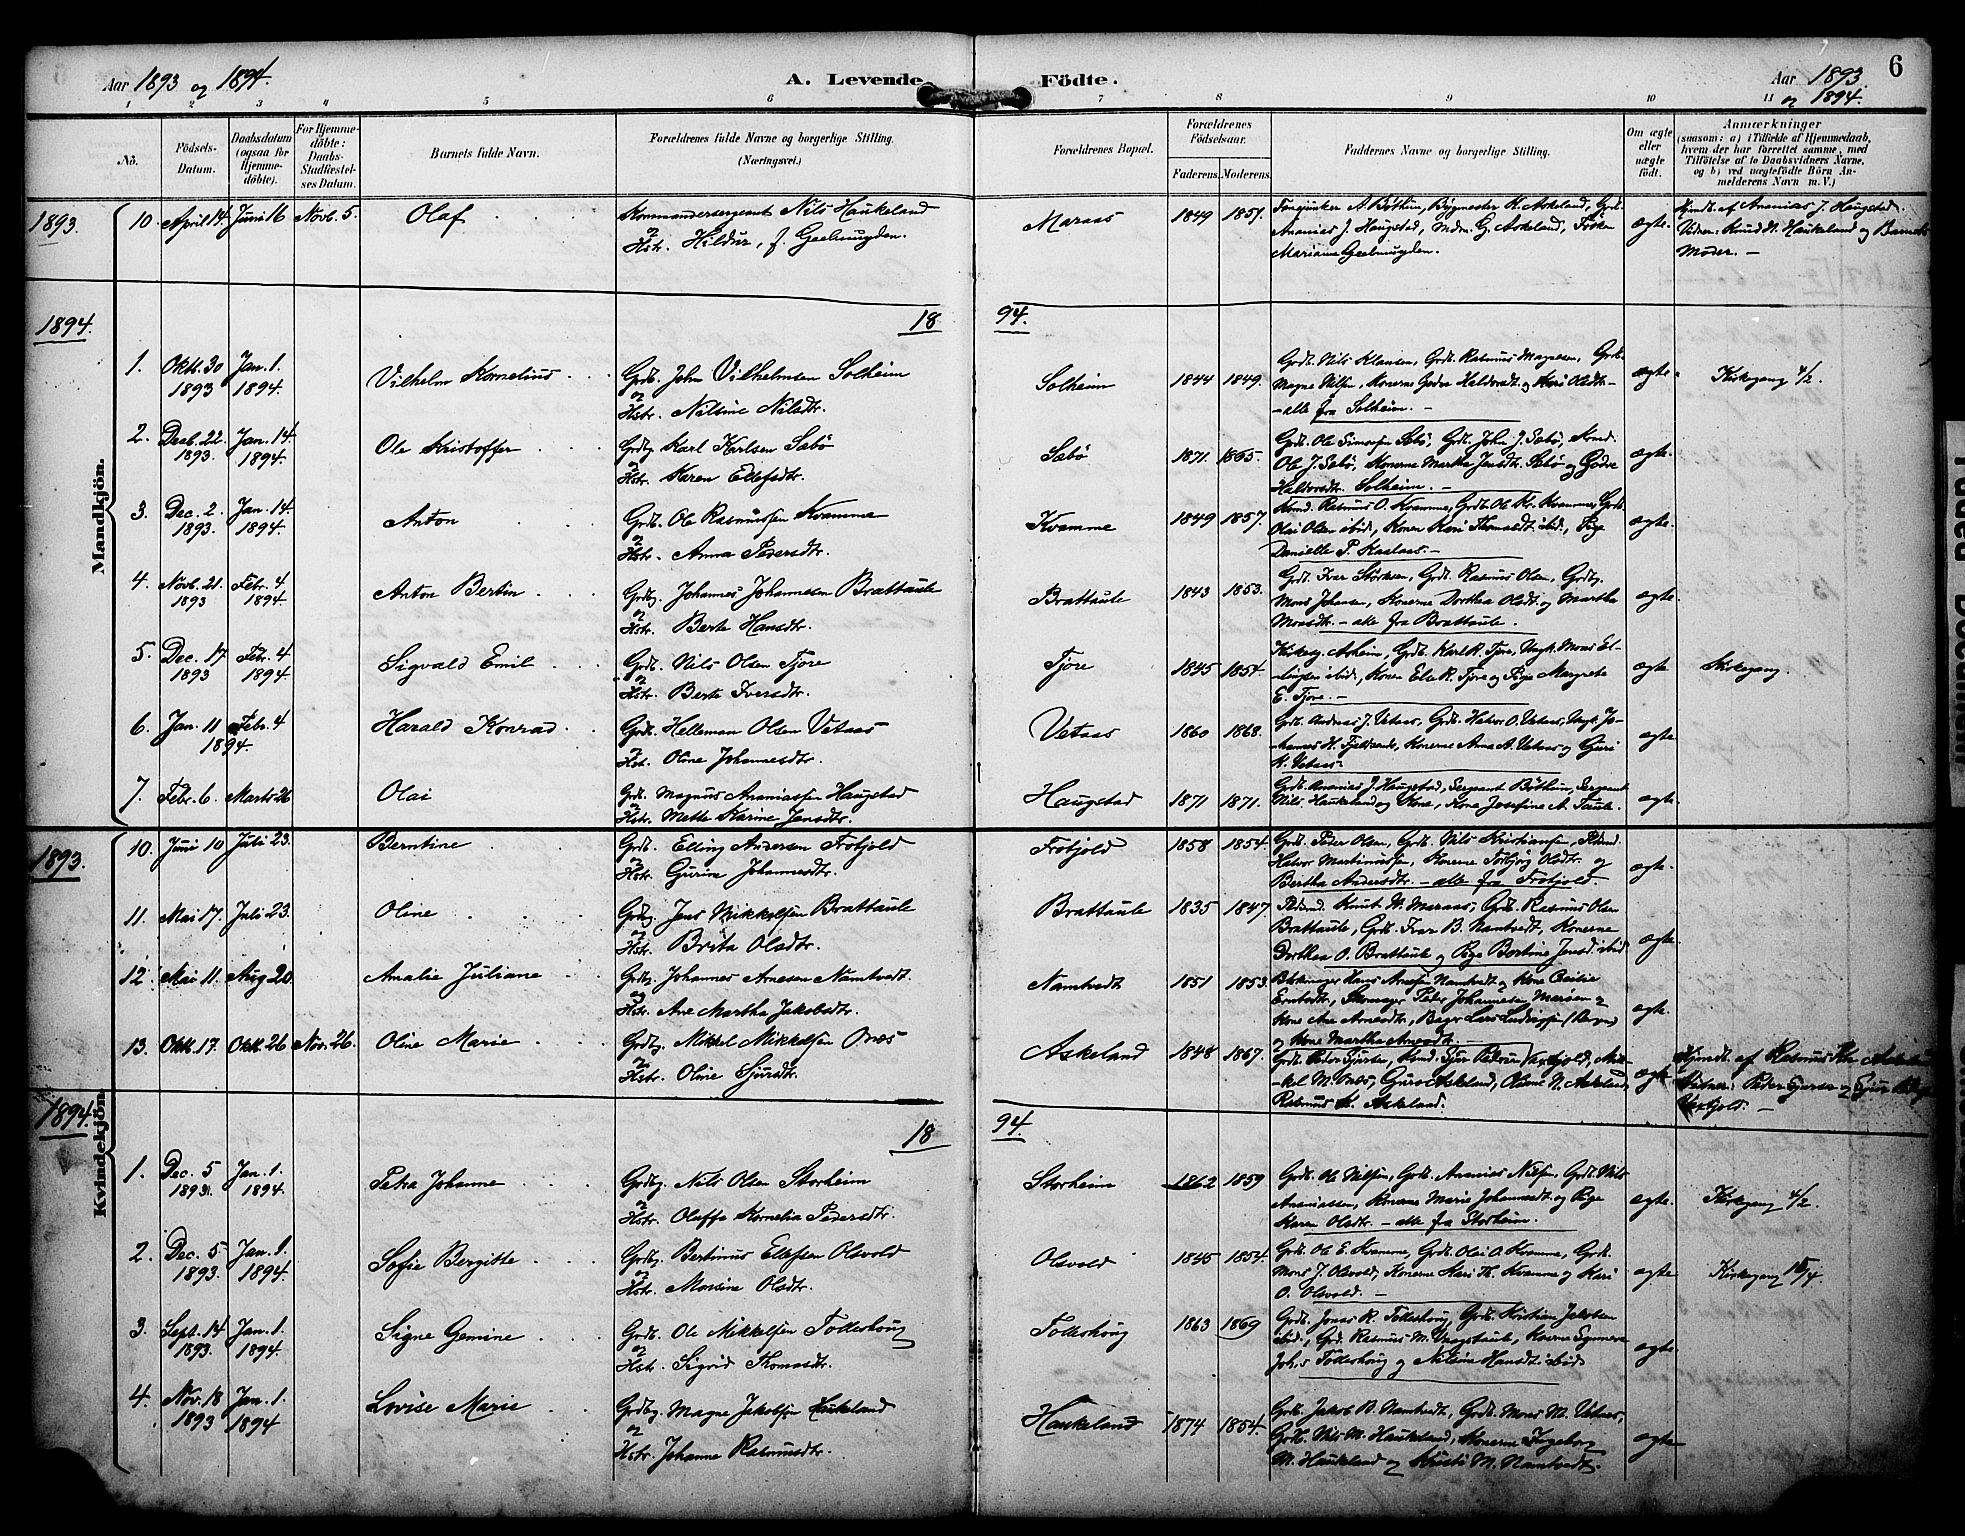 Aar 1893 og 1894.
A. Levende Födte.
Aar 1893 og 1894.
6
1 2 3 4 5 6 7 8 9 10 11
No.
Födsels-Datum.
Daabsdatum (ogsaa for Hjemme-döbte).
For Hjemme-döbte: Daabs-Stadfæstelses Datum.
Barnets fulde Navn.
Forældrenes fulde Navne og borgerlige Stilling. (Næringsvei.)
Forældrenes Bopæl.
Forældrenes Födselsaar. Faderens. Moderens.
Faddernes Navne og borgerlige Stilling.
Om ægte eller uægte födt.
Anmærkninger
(saasom: a) i Tilfælde af Hjemmedaab, hvem der har forrettet samme, med Tilföielse af to Daabsvidners Navne, og b) ved uægtefödte Börn Anmelderens Navn m. V.)
Mandkjön.
1893. 10. April 14. Juni 16 Novb. 5. Olaf
Kommandersergeant Nils Haukeland
og Hstr. Hildur, f. Geelmuyden.
Maraas 1849 1851.
Fanejunker A. Böthun, Bygmester K. Askeland, Grdb.
Ananias J. Haugstad, Mdm. G. Askeland, Fröken
Mariane Geelmuyden.
ægte.
Hjmdb. af Ananias J. Haugstad.
Vidner: Knud N. Haukeland og Barnets
Moder. —
1894. 18 94.
1. Oktb. 30 1893 Jan. 1. 1894. Vilhelm Kornelius
Grdb. John Vilhelmsen Solheim
og Hstr. Nilsine Nilsdtr.
Solheim 1844 1849.
Grdb. Nils Klausen, Grdb. Rasmus Magnesen, Grdb.
Magne Nilsen, Konerne Gjöre Haldorsdt. og Kari Olsdtr. —
— alle fra Solheim. —
ægte. Kirkegang 4/2.
2. Decb. 22. 1893. Jan. 14. 1894. Ole Kristoffer
Grdbg. Karl Karlsen Sæbö
og Hstr. Karen Ellefsdtr.
Sæbö 1871. 1865.
Grdb. Ole Simonsen Sæbö, Grdb. John J. Sæbö, Kond.
Ole J. Sæbö, Konerne Martha Jensdtr. Sæbö og Gjöre
Haldorsdtr. Solheim. —
ægte.
3. Dec. 2. 1893. Jan. 14. 1894. Anton
Grdb. Ole Rasmussen Kvamme
og Hstr. Anna Pedersdtr.
Kvamme 1849 1857.
Kond. Rasmus O. Kvamme, Grdb. Ole K. Kvamme, Grdb.
Olai Olsen ibid., Konen Kari Thomasdt. ibid., Pige
Danielle P. Kaslaas. —
ægte.
4. Novb. 21. 1893 Febr. 4 1894. Anton Bertin
Grdbg. Johannes Johannesen Brattaule
og Hstr. Berte Hansdtr.
Brattaule 1843 1853.
Grdb. Ivar Störksen, Grdb. Rasmus Olsen, Grdbg.
Mons Johansen, Konerne Dorthea Olsdt. og Martha
Monsdtr. — alle fra Brattaule.
ægte.
5. Dec. 17 1893 Febr. 4 1894. Sigvald Emil
Grdb. Nils Olsen Tjore
og Hstr. Berte Iversdtr.
Tjore 1845 1854.
Kirkesg. Askeim, Grdb. Karl R. Tjore, Ungk. Mons El-
-lingsen ibid., Konen Else R. Tjore og Pige Margrete
E. Tjore. —
ægte Kirkegang.
6. Jan. 11 Febr. 4 1894. Harald Konrad
Grdb. Helleman Olsen Vetaas
og Hstr. Oline Johannesdtr.
Vetaas 1860 1868.
Grdb. Andreas J. Vetaas, Grdb. Halvor O. Vetaas, Ungk. Jo-
-hannes H. Fjeldsende, Konerne Anna A. Vetaas og Guri
K. Vetaas.
ægte.
7. Febr. 6. Marts 26 Olai
Grdb. Magnus Ananiassen Haugstad
og Hstr. Mette Karine Jensdtr.
Haugstad 1871 1871.
Grdb. Ananias J. Haugstad, Sergeant Böthun, Sergeant
Nils Haukeland og Kone, Kone Josefine A. Taule.
ægte.
Kvindekjön.
1893. 10. Juni 10 Juli 23. Berntine
Grdb. Elling Andersen Frötjold
og Hstr. Gurine Johannesdtr.
Frötjold 1858 1854.
Grdb. Peder Olsen, Grdb. Nils Kristiansen, Pldsmd.
Halvor Martinussen, Konerne Torbjörg Olsdtr. og
Bertha Andersdtr. — alle fra Frötjold.
ægte.
11. Mai 17. Juli 23. Oline
Grdbg. Jens Mikkelsen Brattaule
og Hstr. Brita Olsdtr.
Brattaule 1835 1847.
Pldsmd. Knut M. Maraas, Grdb. Rasmus Olsen
Brattaule, Grdb. Ivar B. Namtvedt, Konerne
Dorthea O. Brattaule og Pige Bertine Jensd. ibid
ægte.
12 Mai 11. Aug 20. Amalie Juliane
Grdbg. Johannes Arnesen Namtvedt.
og Hstr. Ane Martha Jakobsdtr.
Namtvedt 1851 1853.
Hans Arnesen Namtvedt og Kone Cecilie
Skomager Peder Johannesen Marsen og
Kone Ane Arnesdtr., Bager Lars Ludvigsen (Bergen)
og Kone Martha Arnesdtr. —
ægte.
13. Oktb. 17. Oktb. 26 Nov. 26. Oline Marie
Grdbg. Mikkel Mikkelsen Önæs
og Hstr. Oline Sjursdtr.
Askeland 1848 1867.
Grdb. Peder Sjursen, Kond. Sjur Pedersen Vaxtjold, Mik-
-kel M. Önæs, Guro Askeland, Oline N. Askeland,
Rasmus K. Askeland.
ægte.
Hjmdb. af Rasmus Kn. Askeland
Vidner: Peder Sjursen og Sjur
Vaxtjold. —
1894. 18 94.
1. Dec. 5 1893. Jan. 1. 1894. Petra Johanne
Grdbg. Nils Olsen Storheim
og Hstr. Oluffa Kornelia Pedersdtr.
Storheim 1862 1859
Grdb. Ole Nilsen, Grdb. Ananias Nilsen, Grdb. Nils
Ananiassen, Konerne Marie Johannesdt. og Pige
Karen Olsdtr. — alle fra Storheim.
ægte. Kirkegang 4/2.
2. Dec. 5 1893. Jan. 1. 1894. Sofie Bergitte
Grdbg. Bertinus Ellefsen Olsvold
og Hstr. Monsine Olsdtr.
Olsvold 1845 1854.
Grdb. Ole E. Kvamme, Grdb. Olai O. Kvamme, Grdb.
Mons J. Olsvold, Konerne Kari K. Kvamme og Kari
O. Olsvold. —
ægte Kirkegang 15/4.
3. Sept. 14 1893. Jan. 1. 1894. Signe Gemine
Grdb. Ole Mikkelsen Toskehoug
og Hstr. Sigrid Thomasdtr.
Toskehoug 1863 1869
Grdb. Jonas R. Toskehoug, Grdb. Kristian Jakobsen
ibid., Grd. Rasmus M. Vaagstaule, Konerne Synneve
Johs. Toskehoug og Nilsine Hansdt. ibid.
ægte.
4. Nov. 18 1893 Jan. 1. 1894 Lovise Marie
Grdbg. Magne Jakobsen Haukeland
og Hstr. Johanne Rasmusdtr.
Haukeland 1874 1854.
Grdb. Jakob B. Namtvedt, Grdb. Mons M. Vetaas,
Grdb. Nils M. Haukeland, Konerne Ingeborg
M. Haukeland og Kristi M. Namtvedt.
ægte